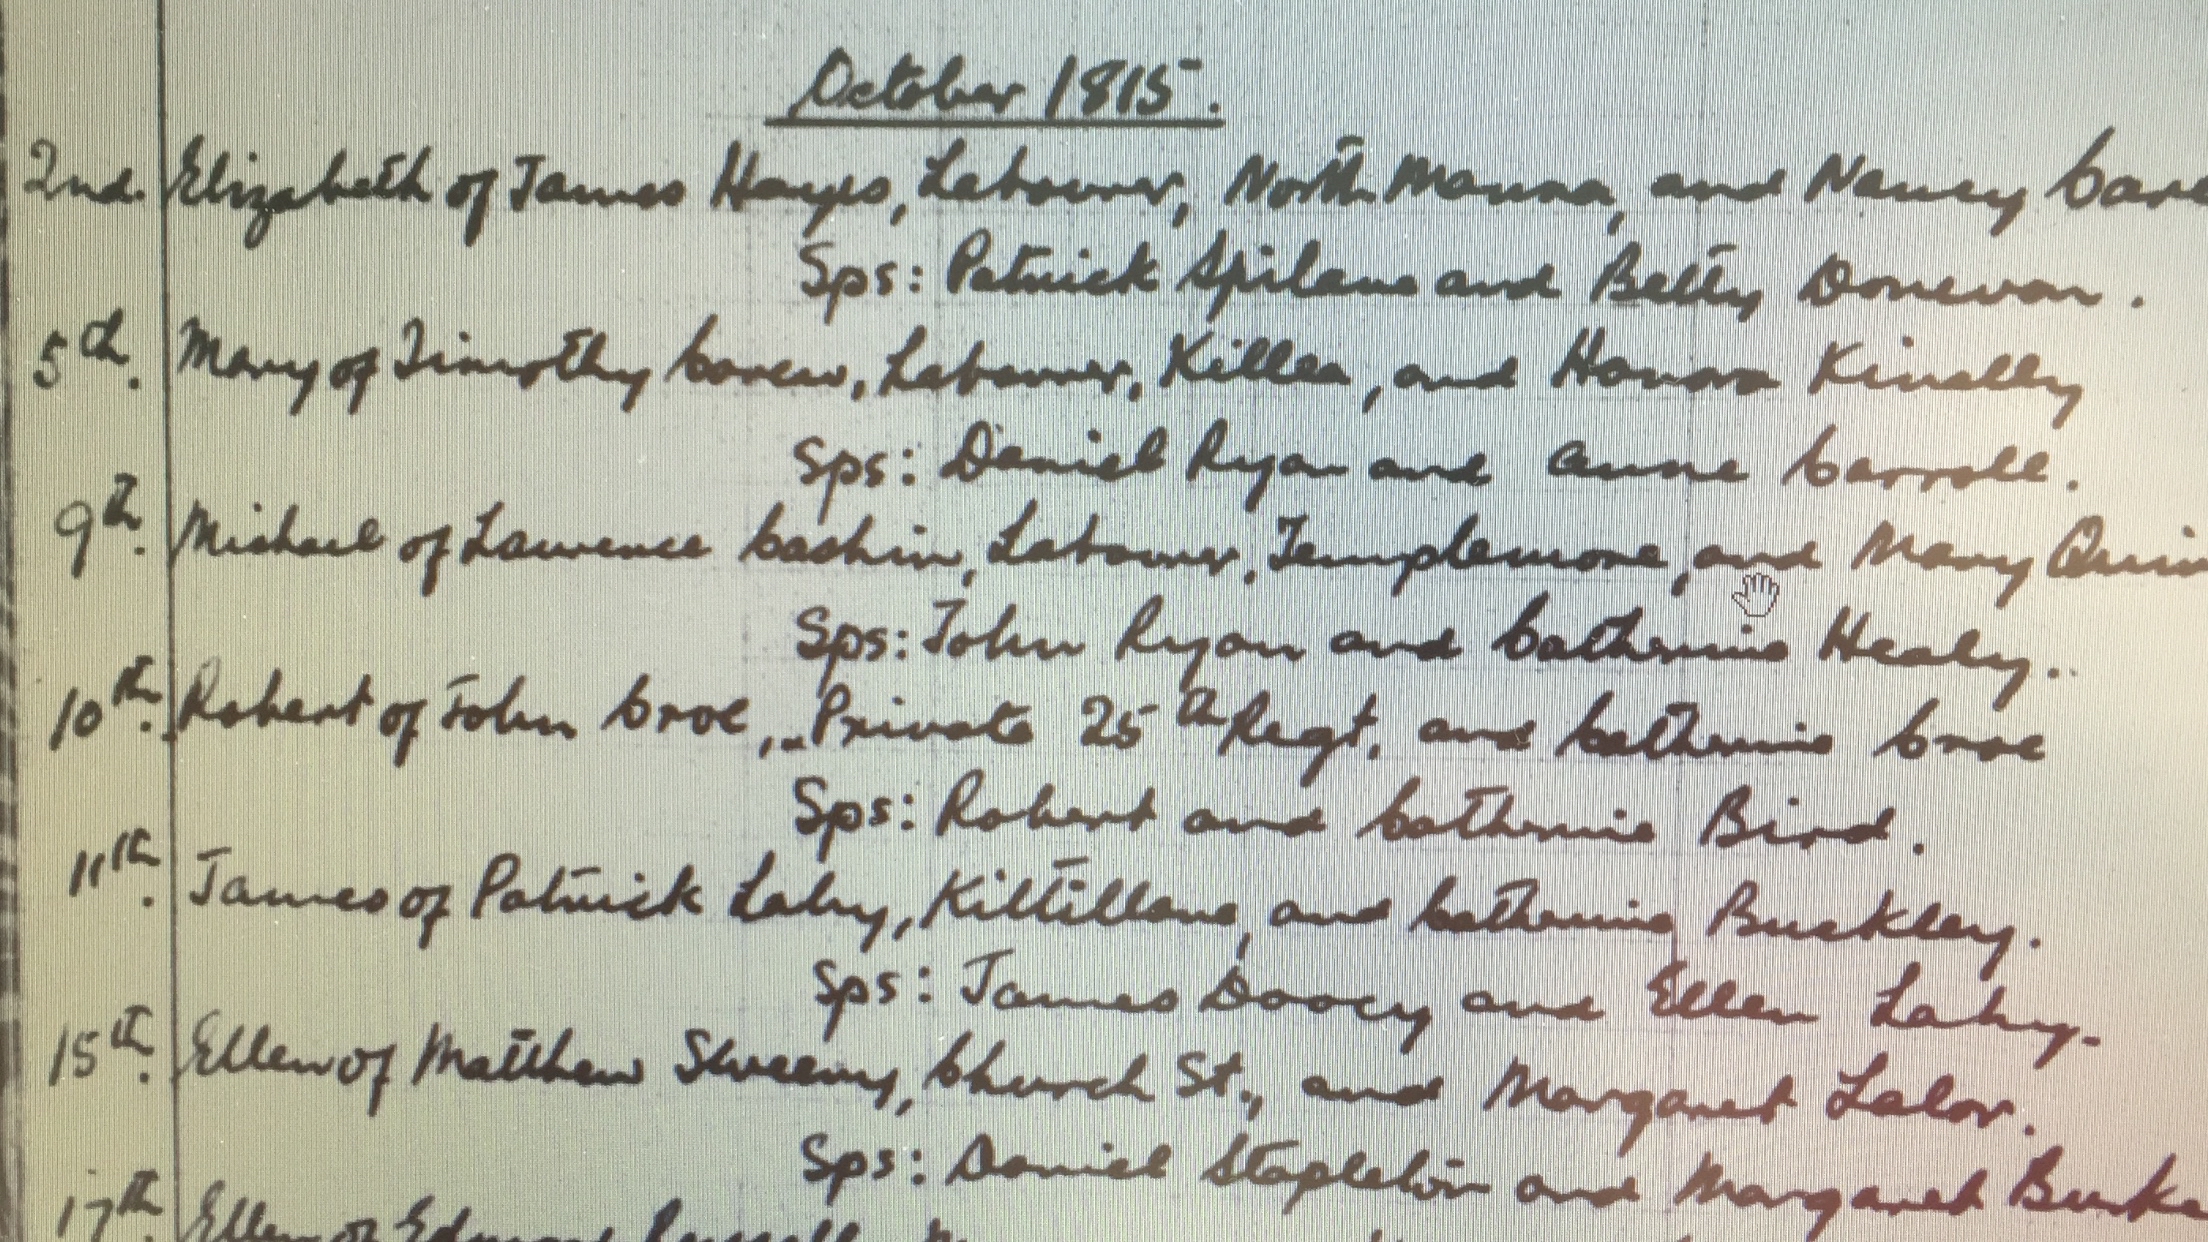 October 1815.
2nd. Elizabeth of James Hayes, Labourer, North Manna, and Nancy
Sps: Patrick Spilane and Betty Donevan.
5th. Mary of Timothy Carew, Labourer, Killea, and Honora Kinelly
Sps: Daniel Ryan and Anne Carroll.
9th. Michael of Laurence Cashin, Labourer, Templemore, and Mary Quin
Sps: John Ryan and Catherine Healy.
10th. Robert of John Croe, Private 25th Regt. and Catherine Croe
Sps: Robert and Catherine Bird.
11th. James of Patrick Lahy, Kiltillane, and Catherine Buckley.
Sps: James Doocy and Ellen Lahy.
15th. Ellen of Matthew Sweeny, Church St., and Margaret Lalor.
Sps: Daniel Stapleton and Margaret Burke
17th Ellen of Edmund Russell,